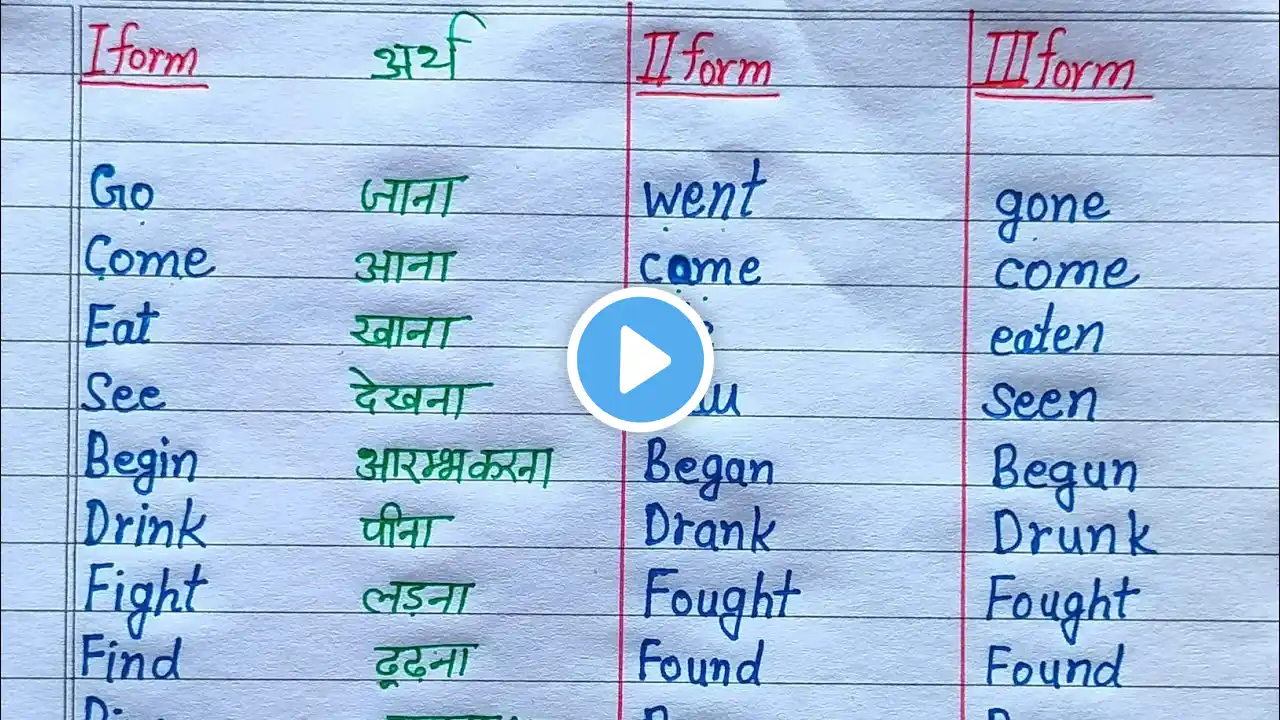 I form अर्थ II form III form
Go जाना went gone
Come आना came come
Eat खाना eaten
See देखना seen
Begin आरम्भ करना Began Begun
Drink पीना Drank Drunk
Fight लड़ना Fought Fought
Find ढूढ़ना Found Found